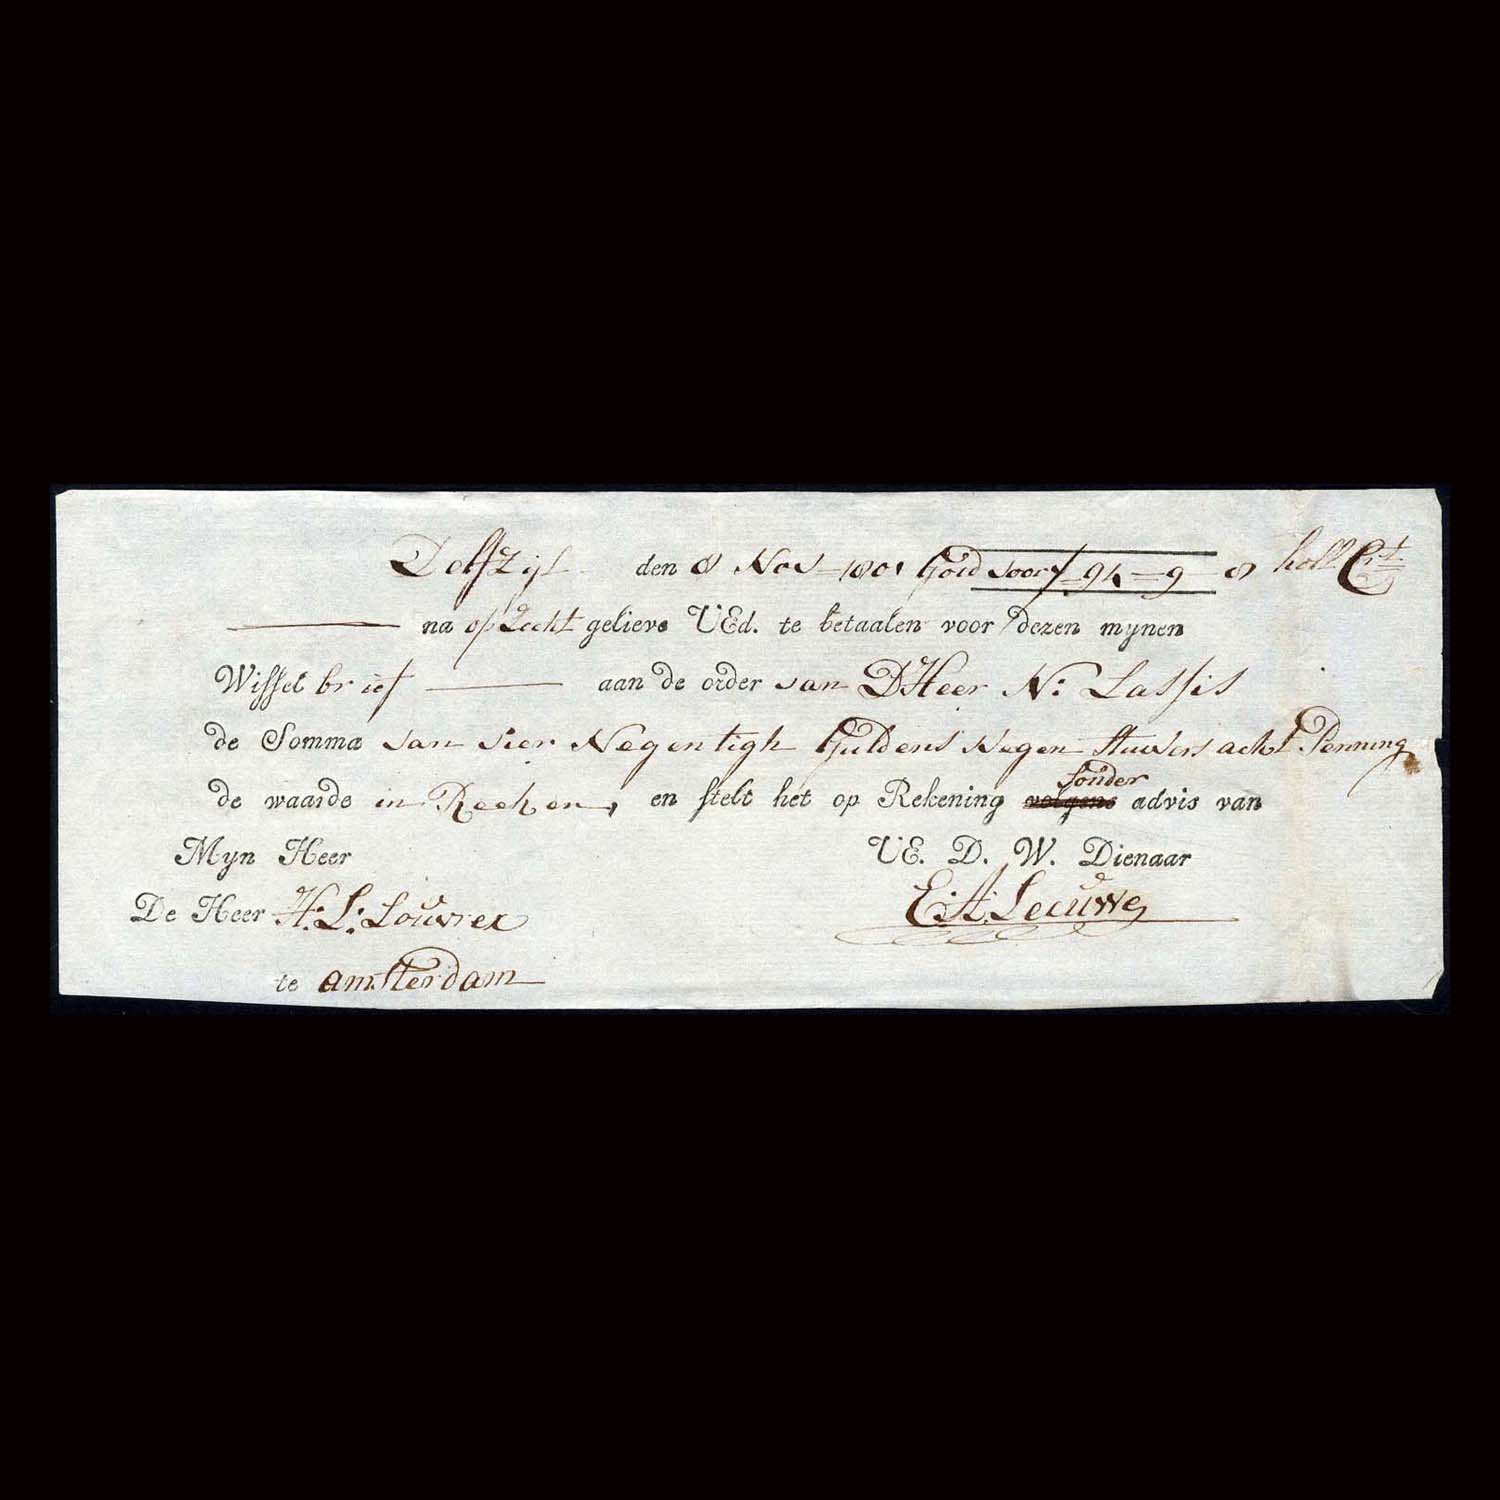 Delfzijl den 8 Nov 1801 Goed voor ƒ 94 = 9 8 holl Crt
na op Zecht gelieve UEd. te betaalen voor dezen mynen
Wissel brief aan de order van D'Heer N: Lassis
de Somma van vier Negentigh Guldens Negen Stuvers acht Penning
sonder
de waarde in Reeken, en stelt het op Rekening volgens advis van
Myn Heer UE. D. W. Dienaar
De Heer H: L: Louvrex E: A: Leeuwe
te amsterdam